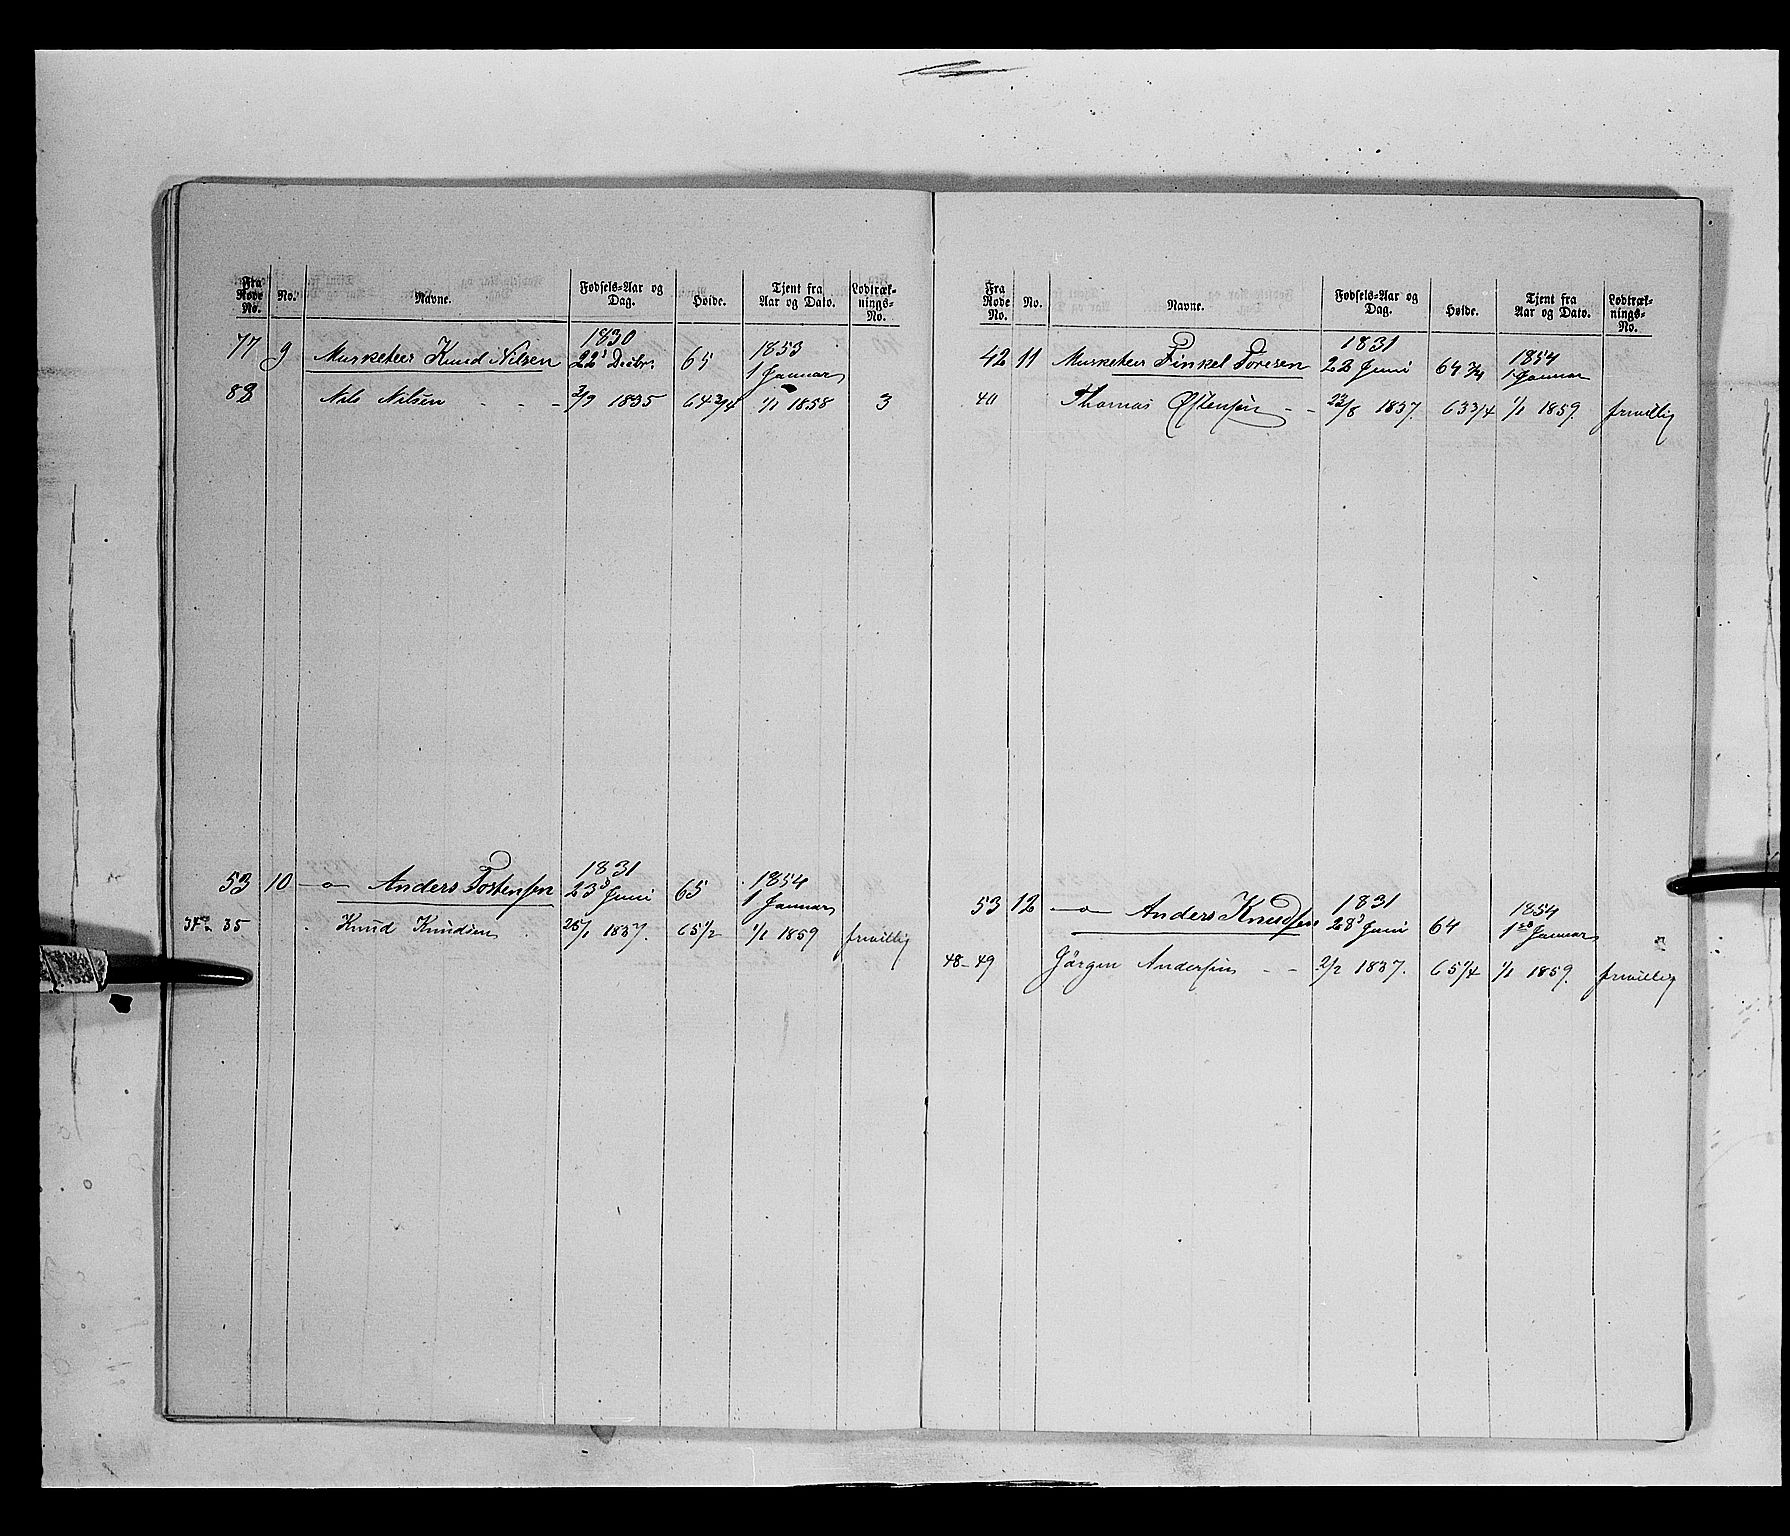 Fra Rode No. | No. | Navne. | Fødsels-Aar og Dag. | Høide. | Tjent fra Aar og Dato. | Lodtræk-nings-No.
77 | 9 | Musketeer Knud Nilsen | 1830 22de Decbr. | 65 | 1853 1 Januar
88 | Nils Nilsen - - - | 3/9 1835 | 64 3/4 | 1/1 1858 | 3
53 | 10 | —o— Anders Tostensen | 1831 23de Juni | 65 | 1854 1 Januar
35 | Knud Knudsen | 25/1 1837. | 65 1/2 | 1/1 1859 | frivillig
Fra Rode No. | No. | Navne. | Fødsels-Aar og Dag. | Høide. | Tjent fra Aar og Dato. | Lodtræk-nings-No.
42 | 11 | Musketeer Finkel Toresen | 1831 22 Juni | 64 3/4 | 1854 1 Januar
40 | Thomas Østensen - - | 23/8 1837. | 63 3/4 | 1/1 1859. | frivillig
53 | 12 | —o— Anders Knudsen | 1831 28de Juni | 64 | 1854 1ste Januar
48-49 | Jörgen Andersen - - | 2/2 1837. | 65 1/4 | 1/1 1859. | frivillig